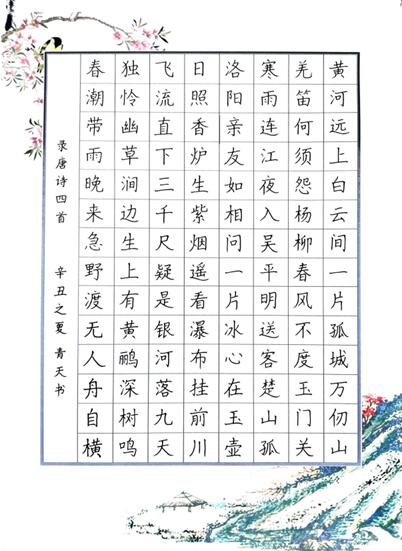 黄河远上白云间一片孤城万仞山
羌笛何须怨杨柳春风不度玉门关
寒雨连江夜入吴平明送客楚山孤
洛阳亲友如相问一片冰心在玉壶
日照香炉生紫烟遥看瀑布挂前川
飞流直下三千尺疑是银河落九天
独怜幽草涧边生上有黄鹂深树鸣
春潮带雨晚来急野渡无人舟自横
录唐诗四首 辛丑之夏 青天书